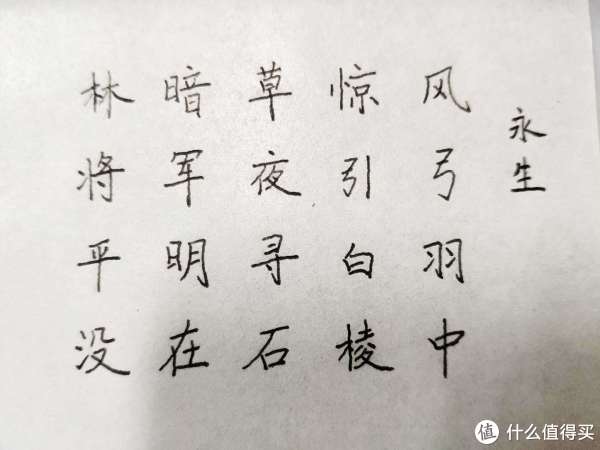 林暗草惊风
将军夜引弓
平明寻白羽
没在石棱中
永生
值 什么值得买